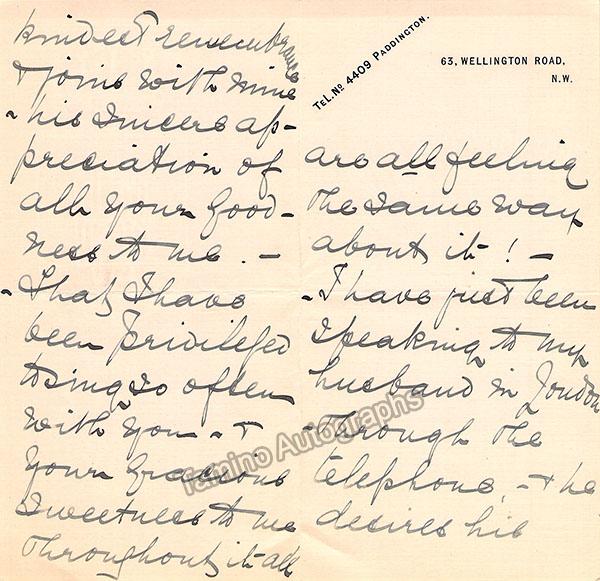 TEL. Nº 4409 PADDINGTON.
63, WELLINGTON ROAD,
N.W.
are all feeling
the same way
about it! –
– I have just been
speaking to my
husband in London
– through the
telephone, – & he
desires his
kindest remembrances
& joins with mine
– his sincere ap-
preciation of
all your good-
ness to me. –
– That I have
been privileged
to sing so often
with you – &
your gracious
sweetness to me
throughout it all
Tamino Autographs